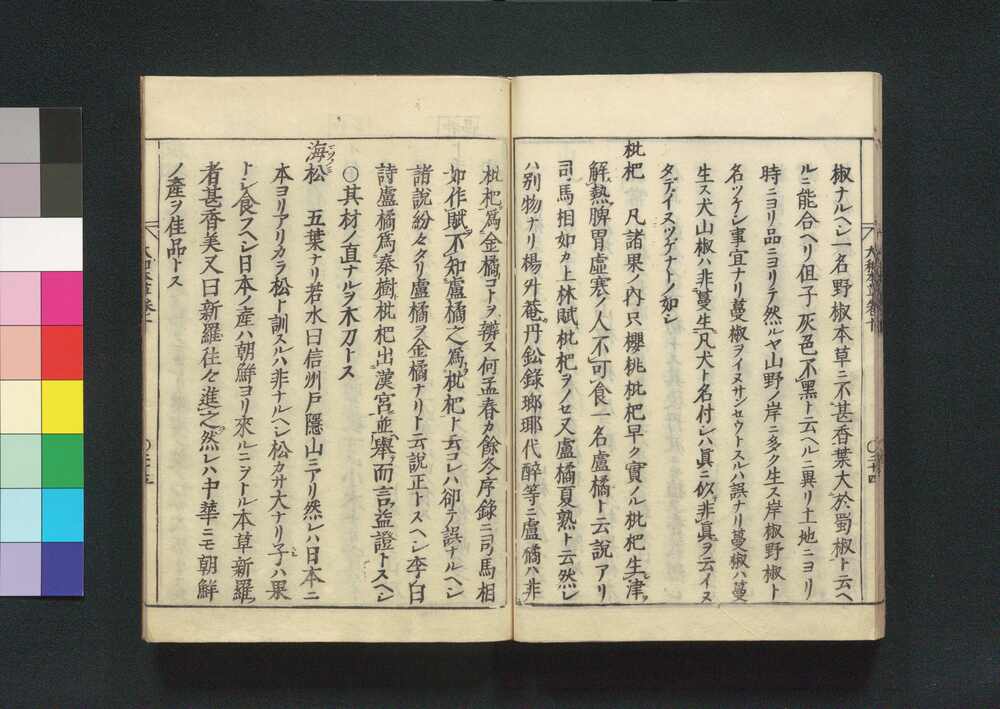 椒ナルヘシ一名野椒本草ニ不甚香葉大於蜀椒ト云ヘ
ルニ能合ヘリ但子灰色不黒ト云ヘルニ異リ土地ニヨリ
時ニヨリ品ニヨリテ然ルヤ山野ノ岸ニ多ク生ス岸椒野椒ト
名ツケシ事宜ナリ蔓椒ヲイヌサンセウトスルハ誤ナリ蔓椒ハ蔓
生ス犬山椒ハ非蔓生凡犬ト名付シハ真ニ似非真ヲ云イヌ
タデイヌツゲナトノ如シ
枇杷 凡諸果ノ內只櫻桃枇杷早ク實ノル枇杷生津
解熱脾胃虛寒ノ人不可食一名盧橘ト云說アリ
司馬相如カ上林賦枇杷ヲノセ又盧橘夏熟ト云然レ
ハ別物ナリ楊升菴丹鉛錄瑯琊代醉等ニ盧橘ハ非
枇杷爲金橘コトヲ辨ス何孟春カ餘冬序錄ニ司馬相
如作賦不知盧橘之爲枇杷ト云コレハ卻テ誤ナルヘシ
諸說紛々タリ盧橘ヲ金橘ナリト云說正トスヘシ李白
詩盧橘爲秦樹枇杷出漢宮並舉而言益證トスヘシ
○其材ノ直ナルヲ木刀トス
海松 五葉ナリ若水曰信州戶隱山ニアリ然レハ日本ニ
本ヨリアリカラ松ト訓スルハ非ナルヘシ松カサ大ナリ子ハ果
トシ食フヘシ日本ノ產ハ朝鮮ヨリ來ルニヲトル本草新羅
者甚香美又曰新羅往々進之然レハ中華ニモ朝鮮
ノ產ヲ佳品トス